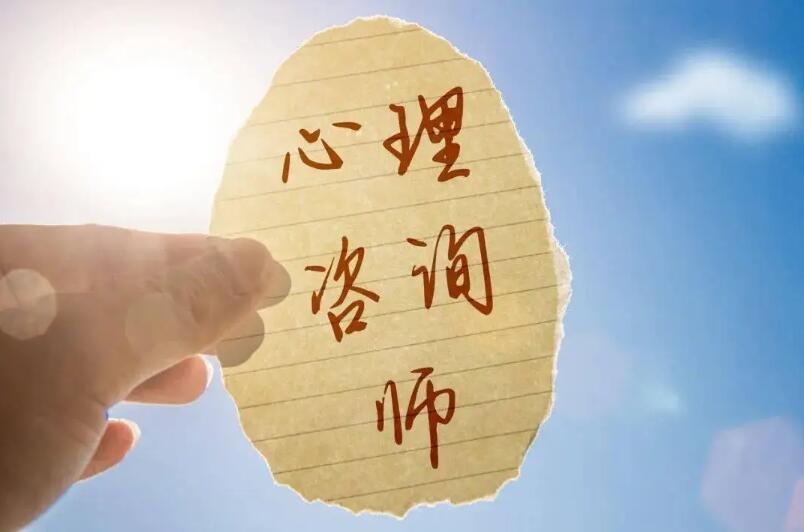 心理
咨询
师